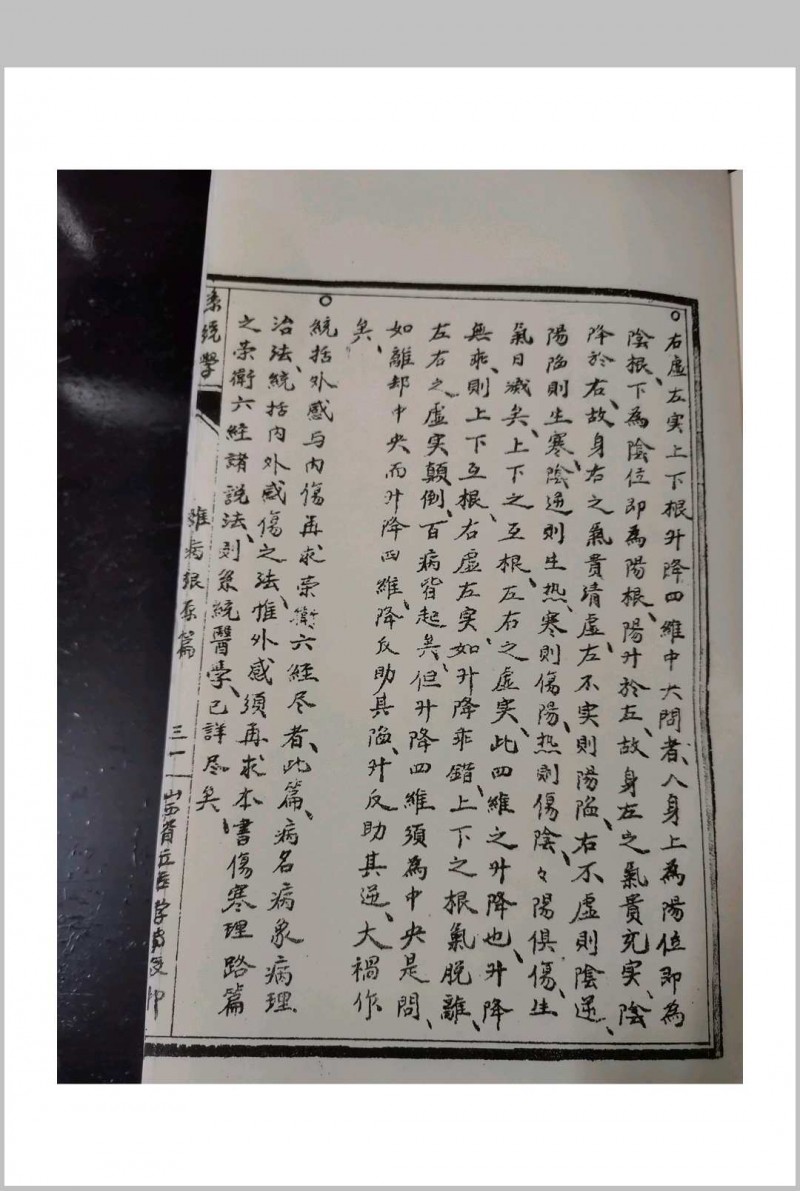 ○右虛左实上下根升降四維中大問者、人身上為陽位即為
陰根、下為陰位即為陽根、陽升於左、故身左之氣貴充实、陰
降於右、故身右之氣貴清虛、左不实則陽陷、右不虛則陰逆、
陽陷則生寒、陰逆則生热、寒則傷陽、热則傷陰、々陽俱傷、生
氣日滅矣、上下之互根、左右之虛实、此四維之升降也、升降
無乖、則上下互根、右虛左实、如升降乖錯、上下之根氣脫離、
左右之虛实顛倒、百病皆起矣、但升降四維須為中央是問、
如離却中央、而升降四維、降反助其陷、升反助其逆、大禍作
矣、
○統括外感与内傷再求荣衛六經尽者、此篇、病名病象病理
治法、統括内外感傷之法、惟外感須再求本書傷寒理路篇
之荣衛六経諸説法、则系統醫学、已詳尽矣、
系統學
雜病根原篇
三一
山西省立医学專
印